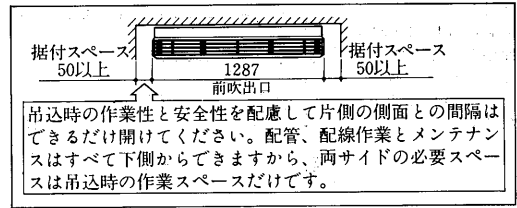 据付スペース
50以上
1287
前吹出口
据付スペース
50以上
吊込時の作業性と安全性を配慮して片側の側面との間隔は
できるだけ開けてください。配管、配線作業とメンテナン
スはすべて下側からできますから、両サイドの必要スペー
スは吊込時の作業スペースだけです。